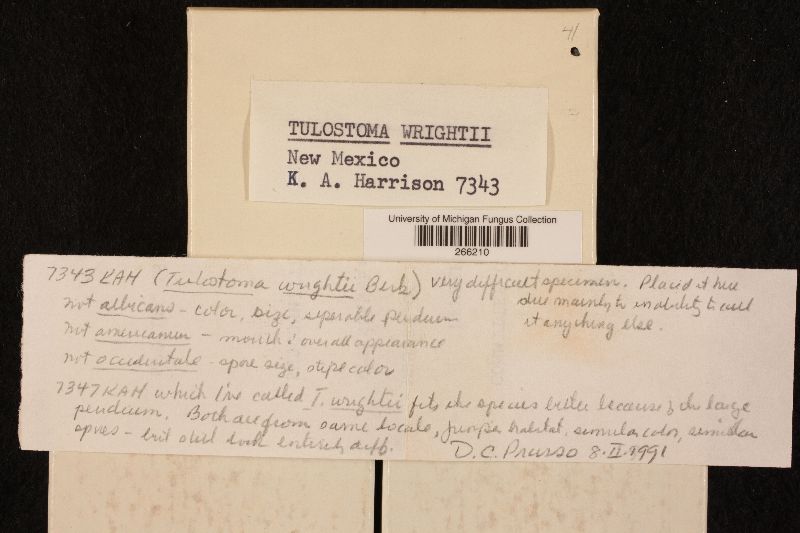 41
TULOSTOMA WRIGHTII
New Mexico
K. A. Harrison 7343
University of Michigan Fungus Collection
266210
7343 KAH (Tulostoma wrightii Berk) very difficult specimen. Placed it here
due mainly to inability to call
it anything else.
not albicans - color, size, separable peridium
not americanum - mouth & overall appearance
not occidentale - spore size, stipe color
7347 KAH which I've called T. wrightii fits the species better because of the large
peridium. Both are from same locale, juniper habitat, similar color, similar
spores - but still look entirely diff.
D. C. Prusso 8·II·1991